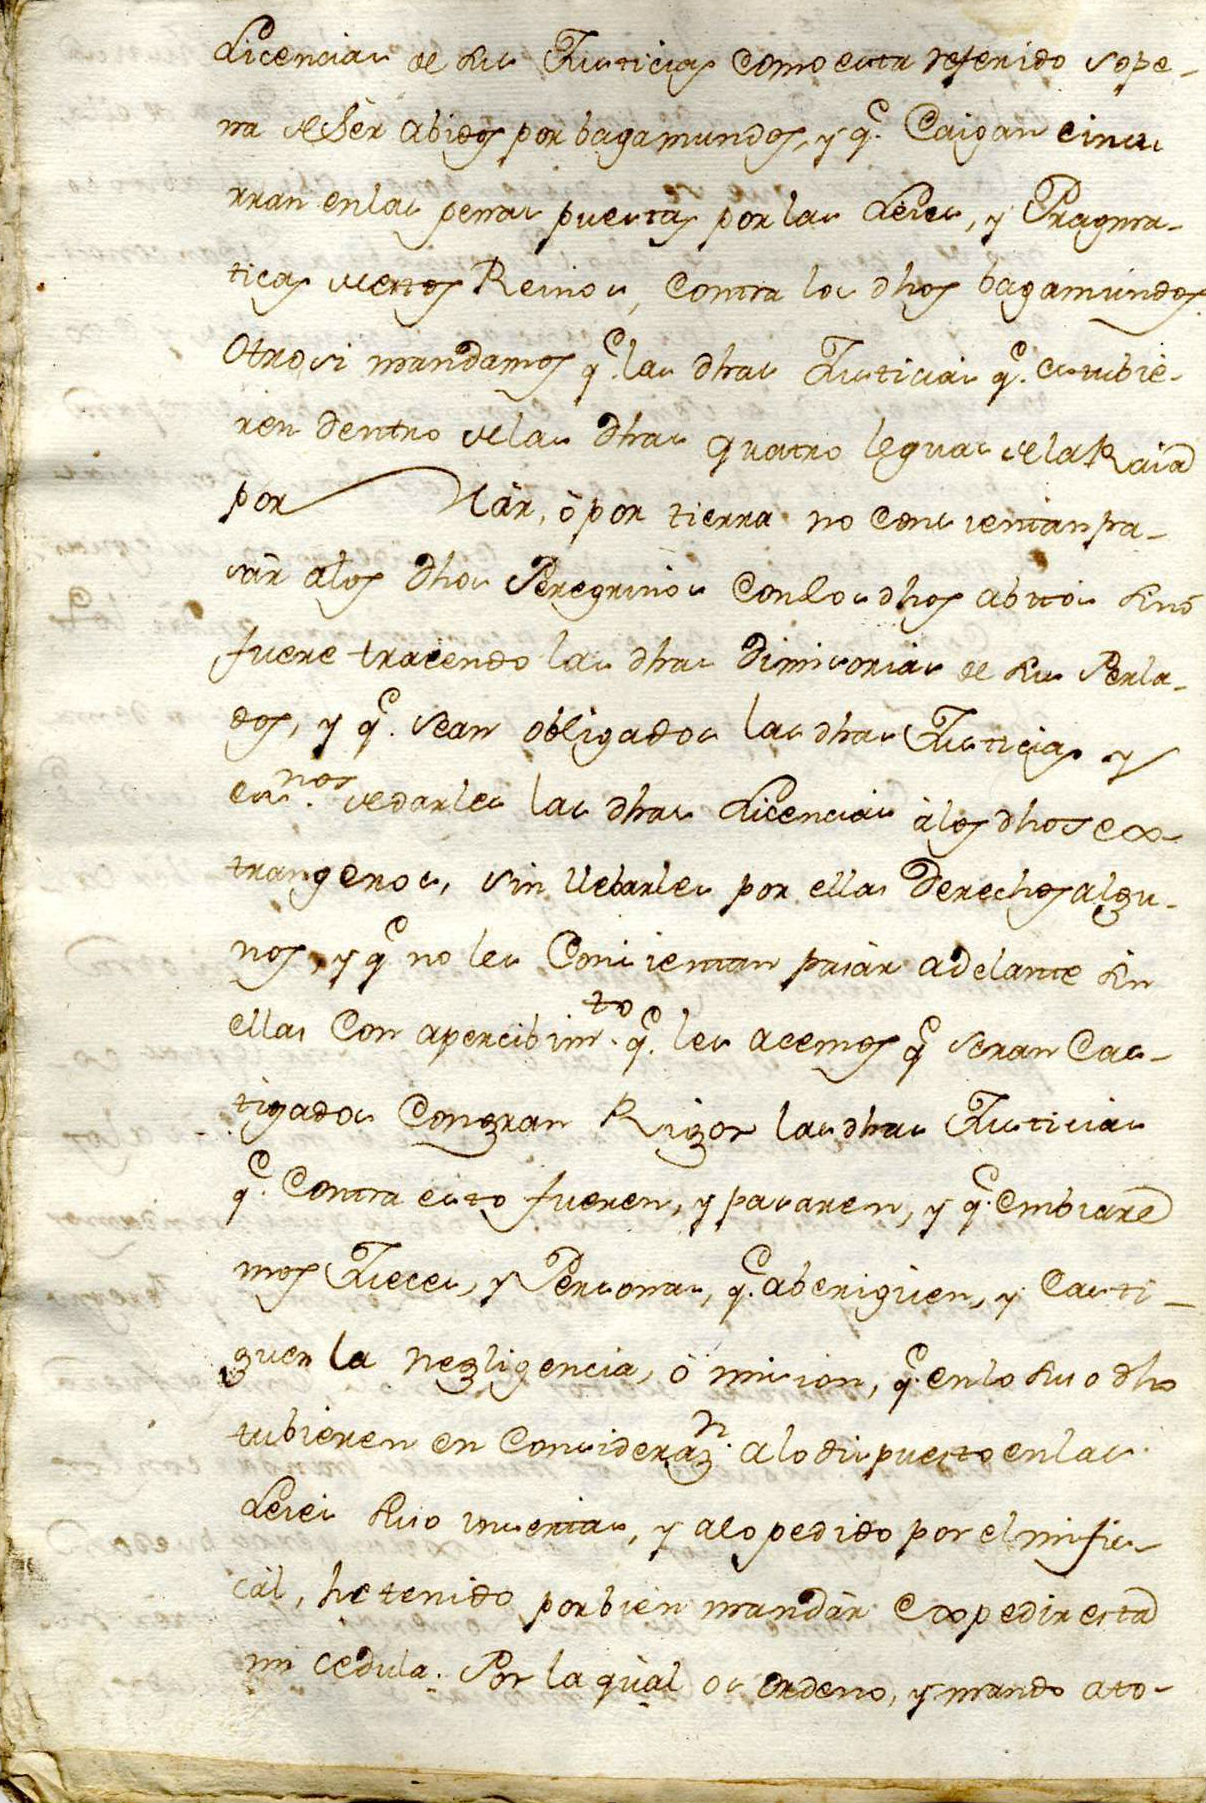 Licencias de sus Justicias como esta referido sope-
na de Ser abidos por bagamundos, y q.e Caigan eincu
rran enlas penas puestas por las Leies, y Pragma-
ticas destos Reinos, contra los dhos bagamundos.
Otrosi mandamos q.e las dhas Justicias q.e estubie-
ren dentro delas dhas quatro leguas dela Raia
por Mar, ò por tierra no consientan pa-
sàr alos dhos Peregrinos Conlos dhos abitos sino
fuere traiendo las dhas dimisorias de sus Perla-
dos, y q.e sean obligados las dhas Justicias y
es.nos dedarles las dhas Licencias àlos dhos ex-
trangeros, sin llebarles por ellas Derechos algu-
nos, y q.e no les Consientan pasàr adelante sin
ellas Con apercibim.to q.e les acemos q.e seran Cas-
tigados Congran Rigor las dhas Justicias
q.e Contra esto fueren, y pasaren, y q.e embiare
mos Jueces, y Personas, q.e aberiguen, y Casti-
guen la negligencia, ò mision, q.e enlo suso dho
tubieren en Consideraz.n alo dispuesto enlas
Leies suso insertas, y alo pedido por el mi fis-
càl, he tenido por bien mandàr expedir esta
mi cedula. Por la qual os ordeno, y mando ato-